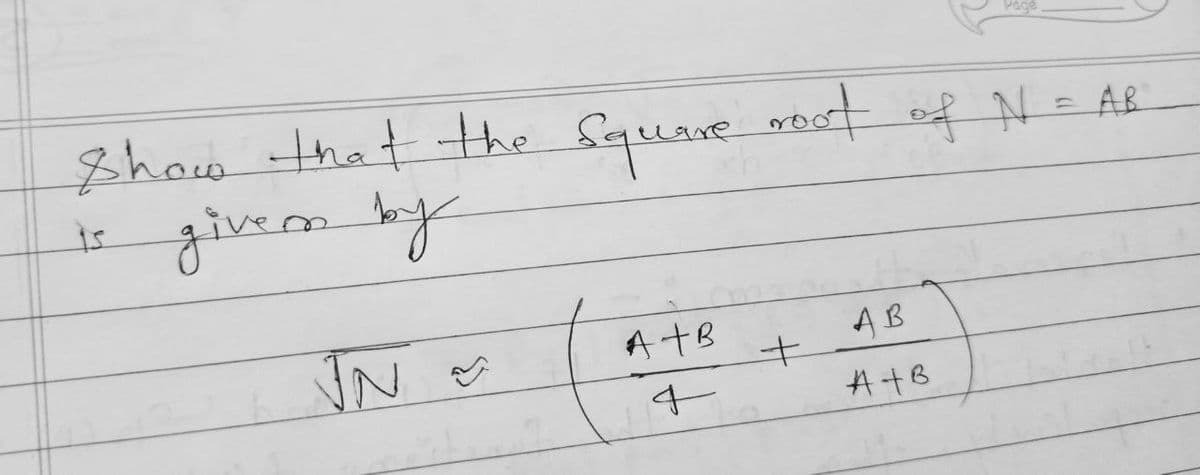 Page
Show that the Square root of N = AB
is given by
√N ≈ ( (A+B)/4 + AB/(A+B) )